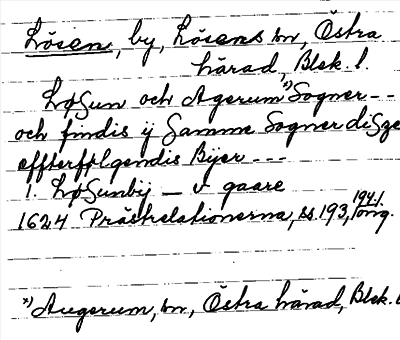 Lösen, by, Lösens sn, Östra
härad, Blek. l.
LøSun och Agerum *) Sogner --
och findis ij Samme Sogner diSze
effterfølgendis Bÿer ---
1. LøSunbÿ — v gaare
1624 Prästrelationerna, ss. 193, 194 f. orig.
*) Augerum, sn, Östra härad, Blek. l.